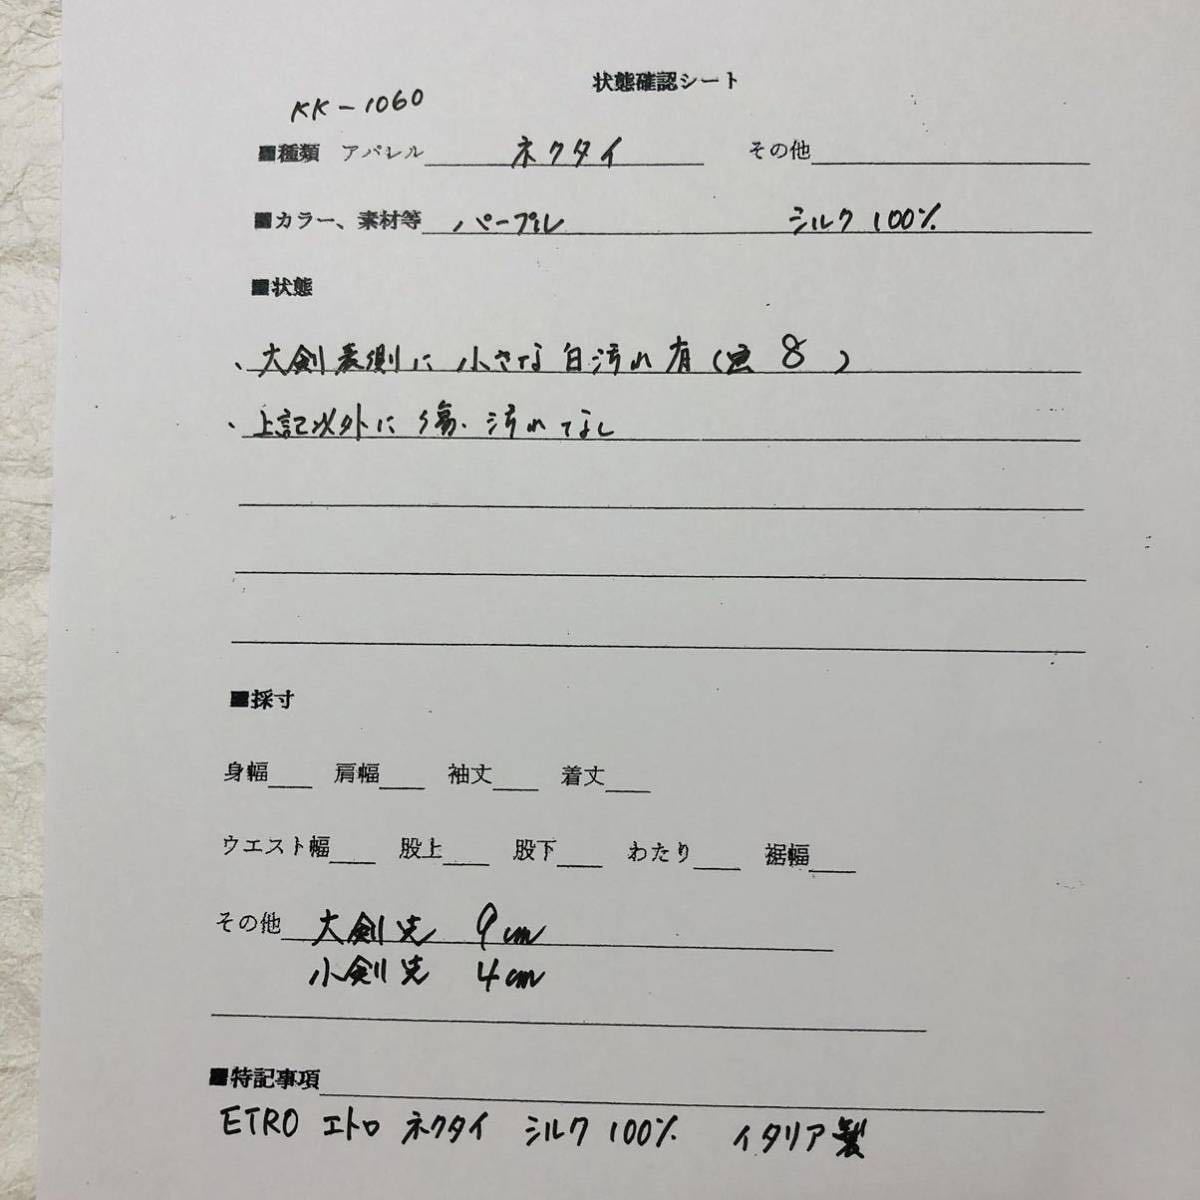 状態確認シート
KK-1060
■種類 アパレル ネクタイ その他
■カラー、素材等 パープル シルク100%
■状態
、大剣表側に小さな白汚れ有( 8 )
、上記以外に傷、汚れてなし
■採寸
身幅 肩幅 袖丈 着丈
ウエスト幅 股上 股下 わたり 裾幅
その他 大剣先 9cm
小剣先 4cm
■特記事項
ETRO エトロ ネクタイ シルク100% イタリア製